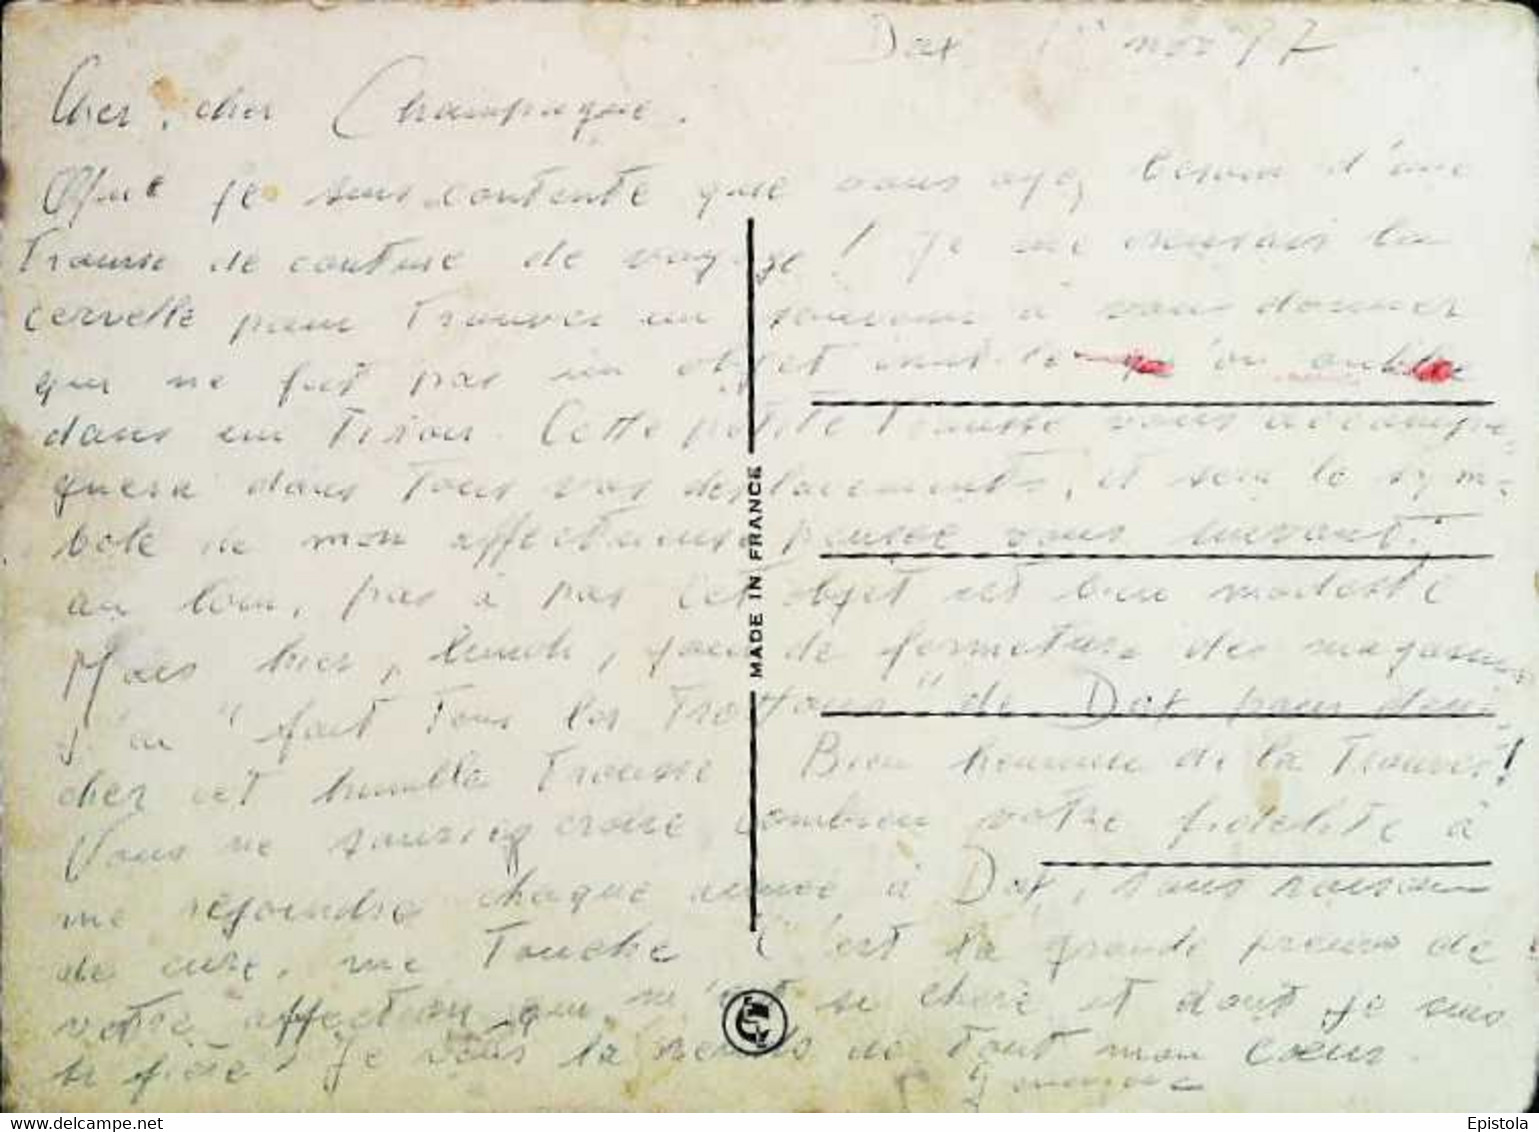 Dax 1er nov 77
Cher, cher Champagne.
Que je suis contente que vous ayez besoin d'une
trousse de couture de voyage ! Je me creusais la
cervelle pour trouver un souvenir à vous donner
qui ne fut pas un objet inutile qu'on oublie
dans un tiroir. Cette petite trousse vous accompa-
gnera dans tous vos déplacements, et sera le sym-
bole de mon affectueuse pensée vous suivant,
au loin, pas à pas Cet objet est bien modeste
Mais hier, lundi, jour de fermeture des magasins
j'ai "fait tous les trottoirs" de Dax pour déni-
cher cet humble trousse. Bien heureuse de la trouver !
Vous ne sauriez croire combien votre fidélité à
me rejoindre chaque année à Dax, sans raison
de cure, me touche C'est la grande preuve de
votre affection qui m'est si chère et dont je suis
si fière ! Je vous la rends de tout mon cœur.
MADE IN FRANCE
Epistola